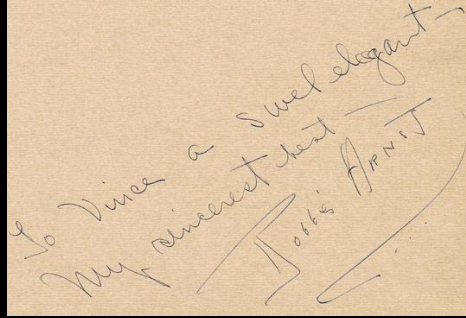 To Vince a swel elegant—
My sincerest best—
Bobbie Arnst